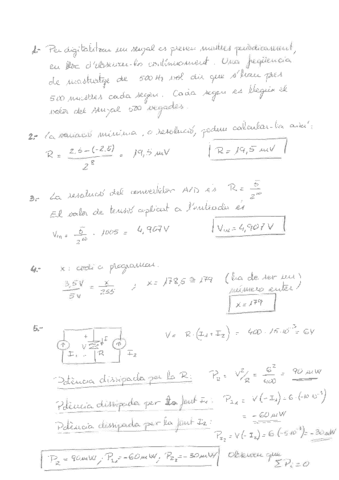 1.- Per digitalitzar un senyal es prenen mostres periòdicament,
en lloc d'observar-ho contínuament. Una freqüència
de mostratge de 500 Hz vol dir que s'han pres
500 mostres cada segon. Cada segon es llegeix el
valor del senyal 500 vegades.
2.- La variació mínima, o resolució, podem calcular-la així:
R = (2,5-(-2,5))/2^8 = 19,5 mV R = 19,5 mV
3.- La resolució del convertidor A/D és R = 5/2^10
El valor de tensió aplicat a l'entrada és
Vin = 5/2^10 · 1005 = 4,907 V Vin = 4,907 V
4.- x: codi a programar.
3,5V/5V = x/255 ; x = 178,5 ≅ 179 (ha de ser un
número enter)
x = 179
5.- I1 V R I2 V = R·(I1+I2) = 400·15·10^-3 = 6V
Potència dissipada per la R: PR = V²/R = 6²/400 = 90 mW
Potència dissipada per la font I1: PI1 = V(-I1) = 6·(-10·10^-3)
= -60 mW
Potència dissipada per la font I2:
PI2 = V(-I2) = 6(-5·10^-3) = -30 mW
PR = 90 mW, PI1 = -60 mW, PI2 = -30 mW Observem que
ΣPi = 0